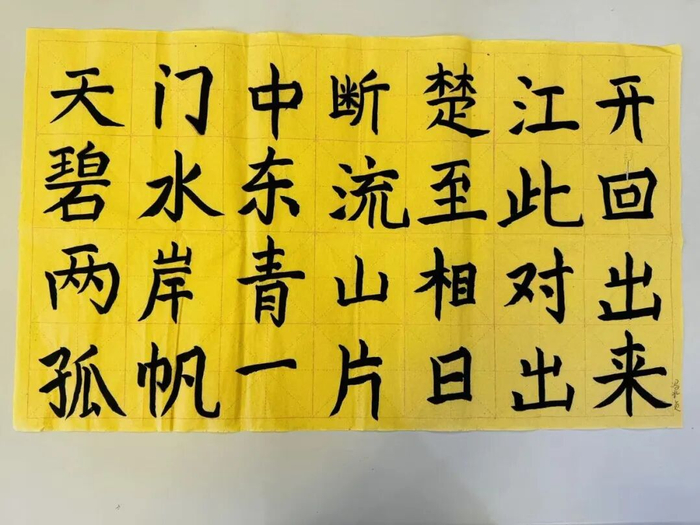 天门中断楚江开
碧水东流至此回
两岸青山相对出
孤帆一片日出来